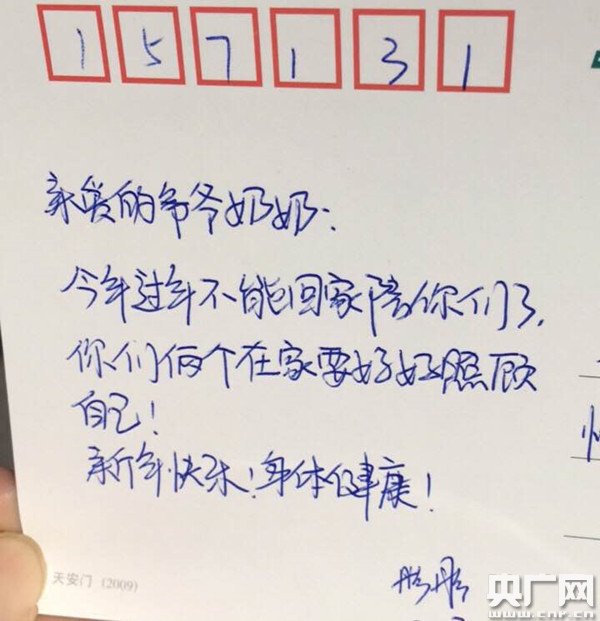 157131
亲爱的爷爷奶奶:
今年过年不能回家陪你们了,
你们俩个在家要好好照顾
自己!
新年快乐!身体健康!
彤彤
天安门 (2009)
央广网
www.cnr.cn